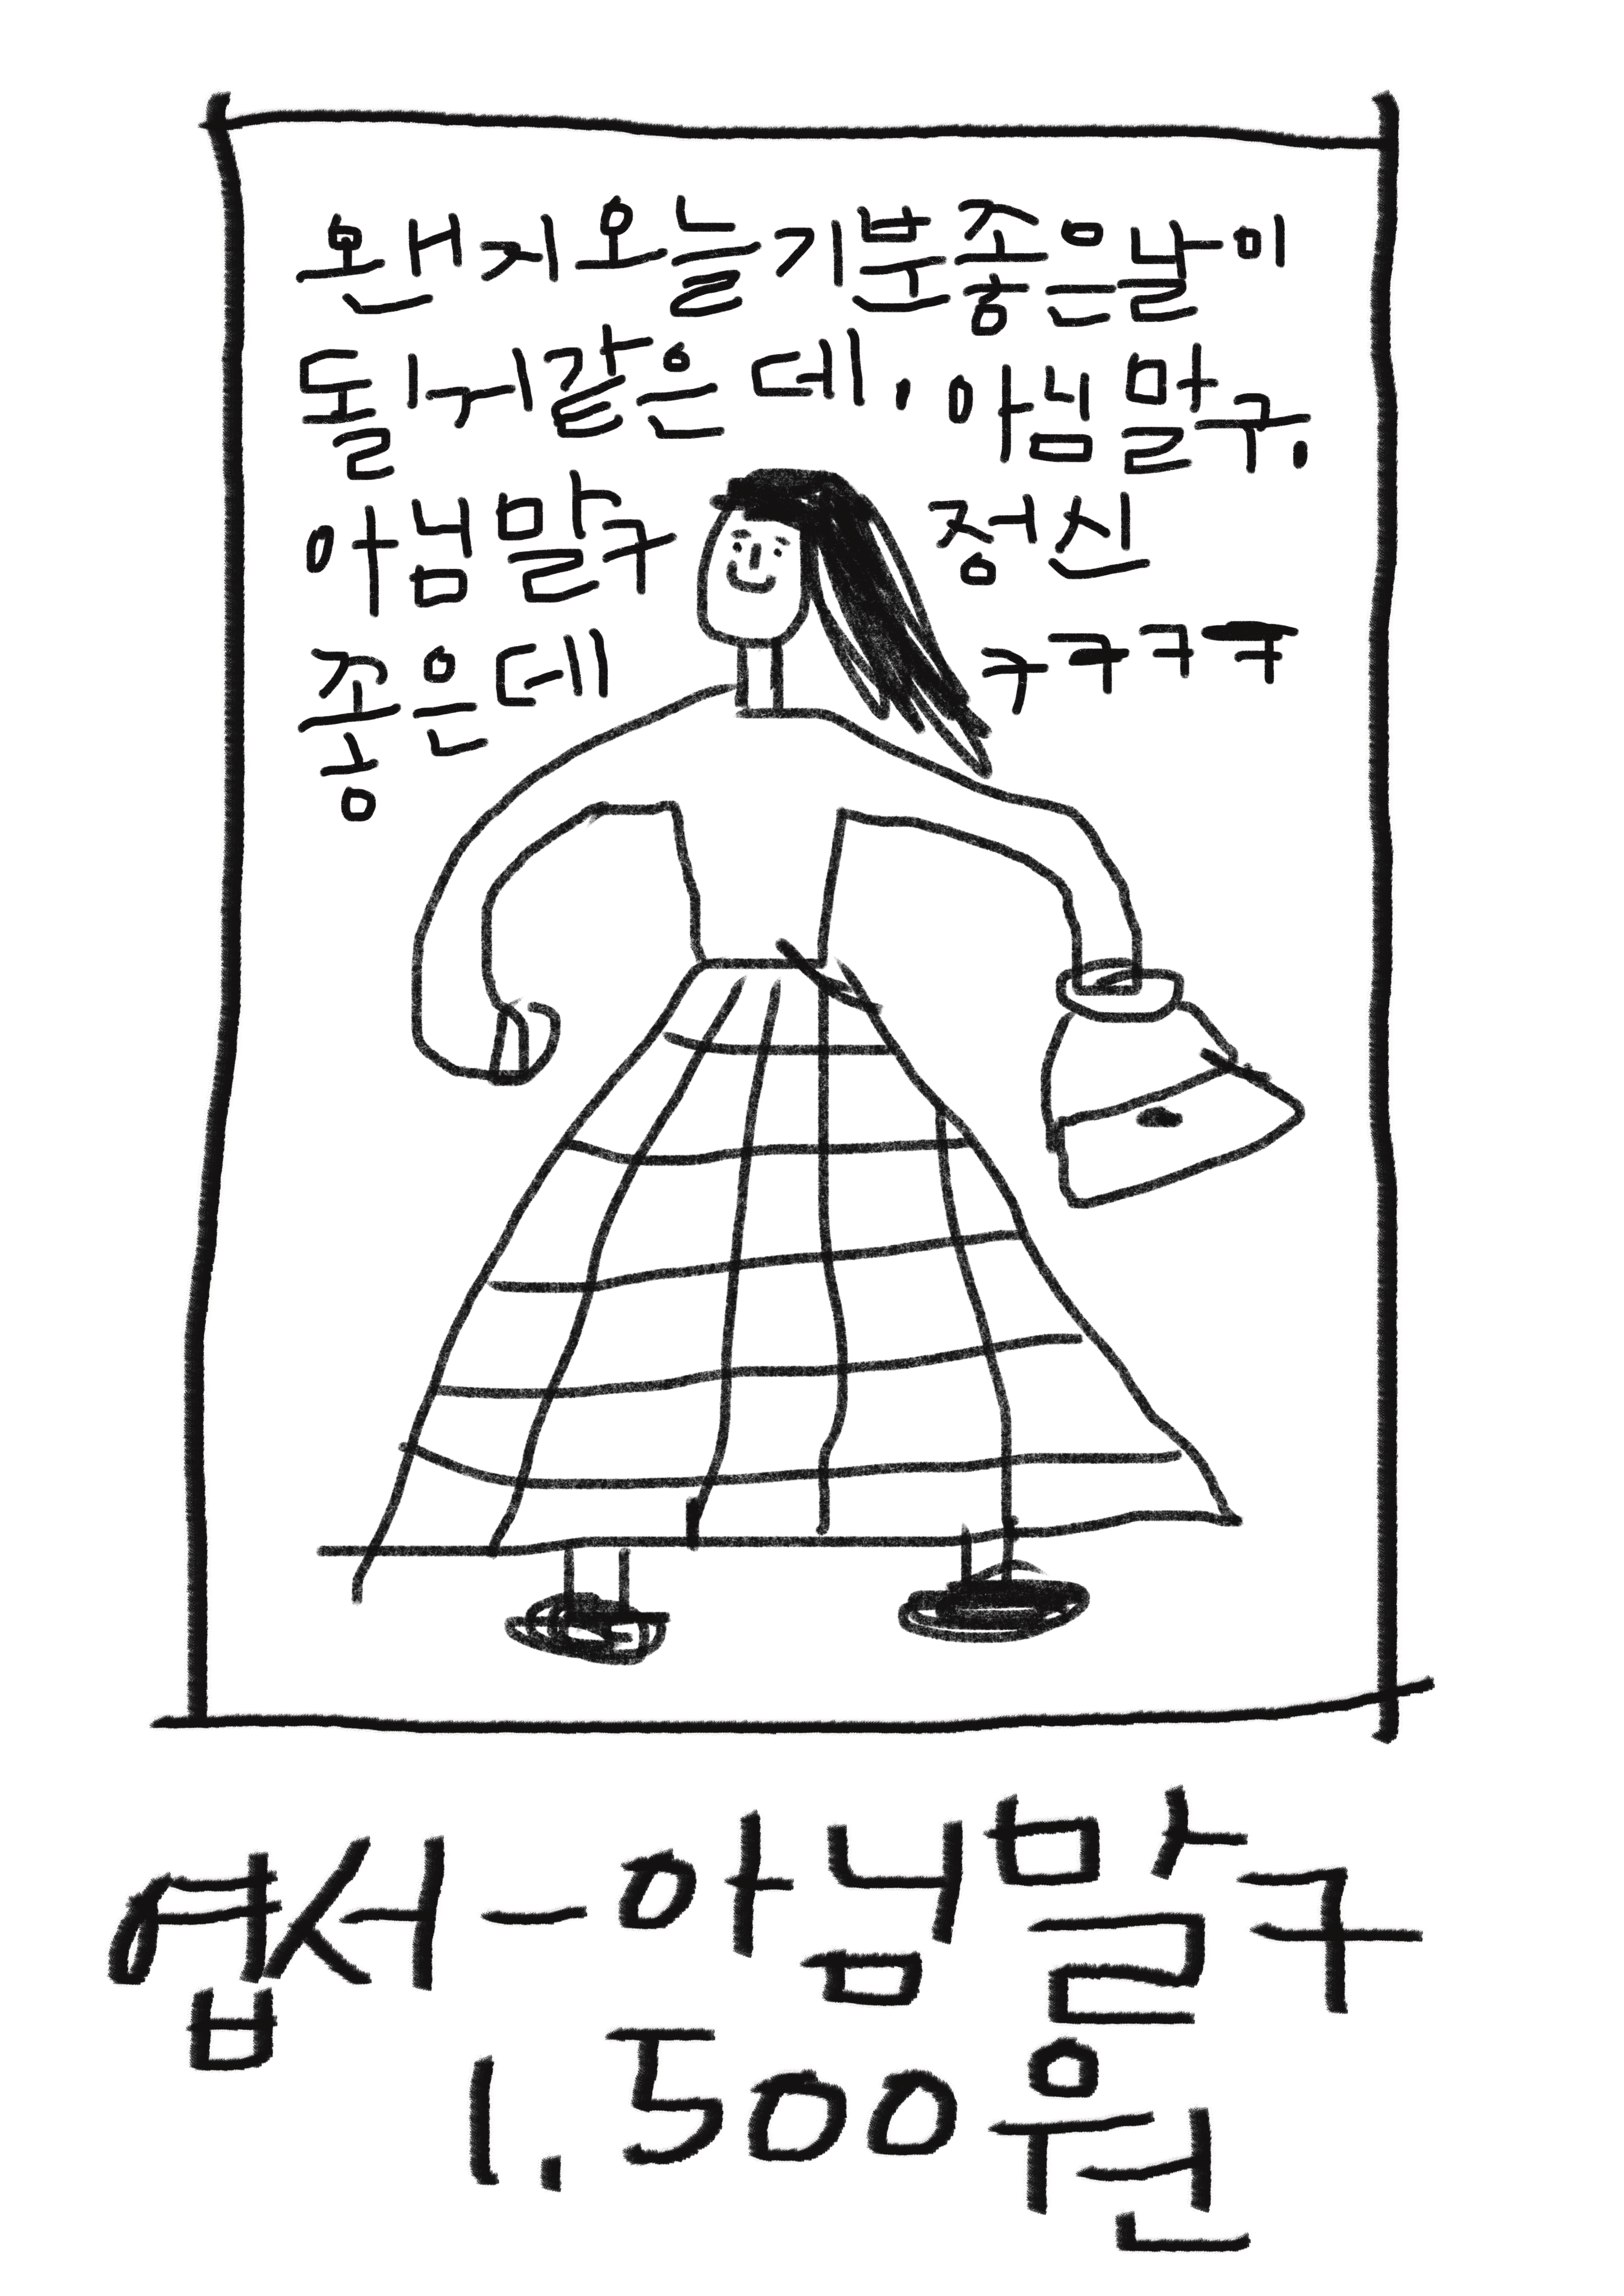 왠지오늘기분좋은날이
될거같은데. 아님말구.
아님말구 정신
좋은데 ㅋㅋㅋㅋ
엽서-아님말구
1.500원